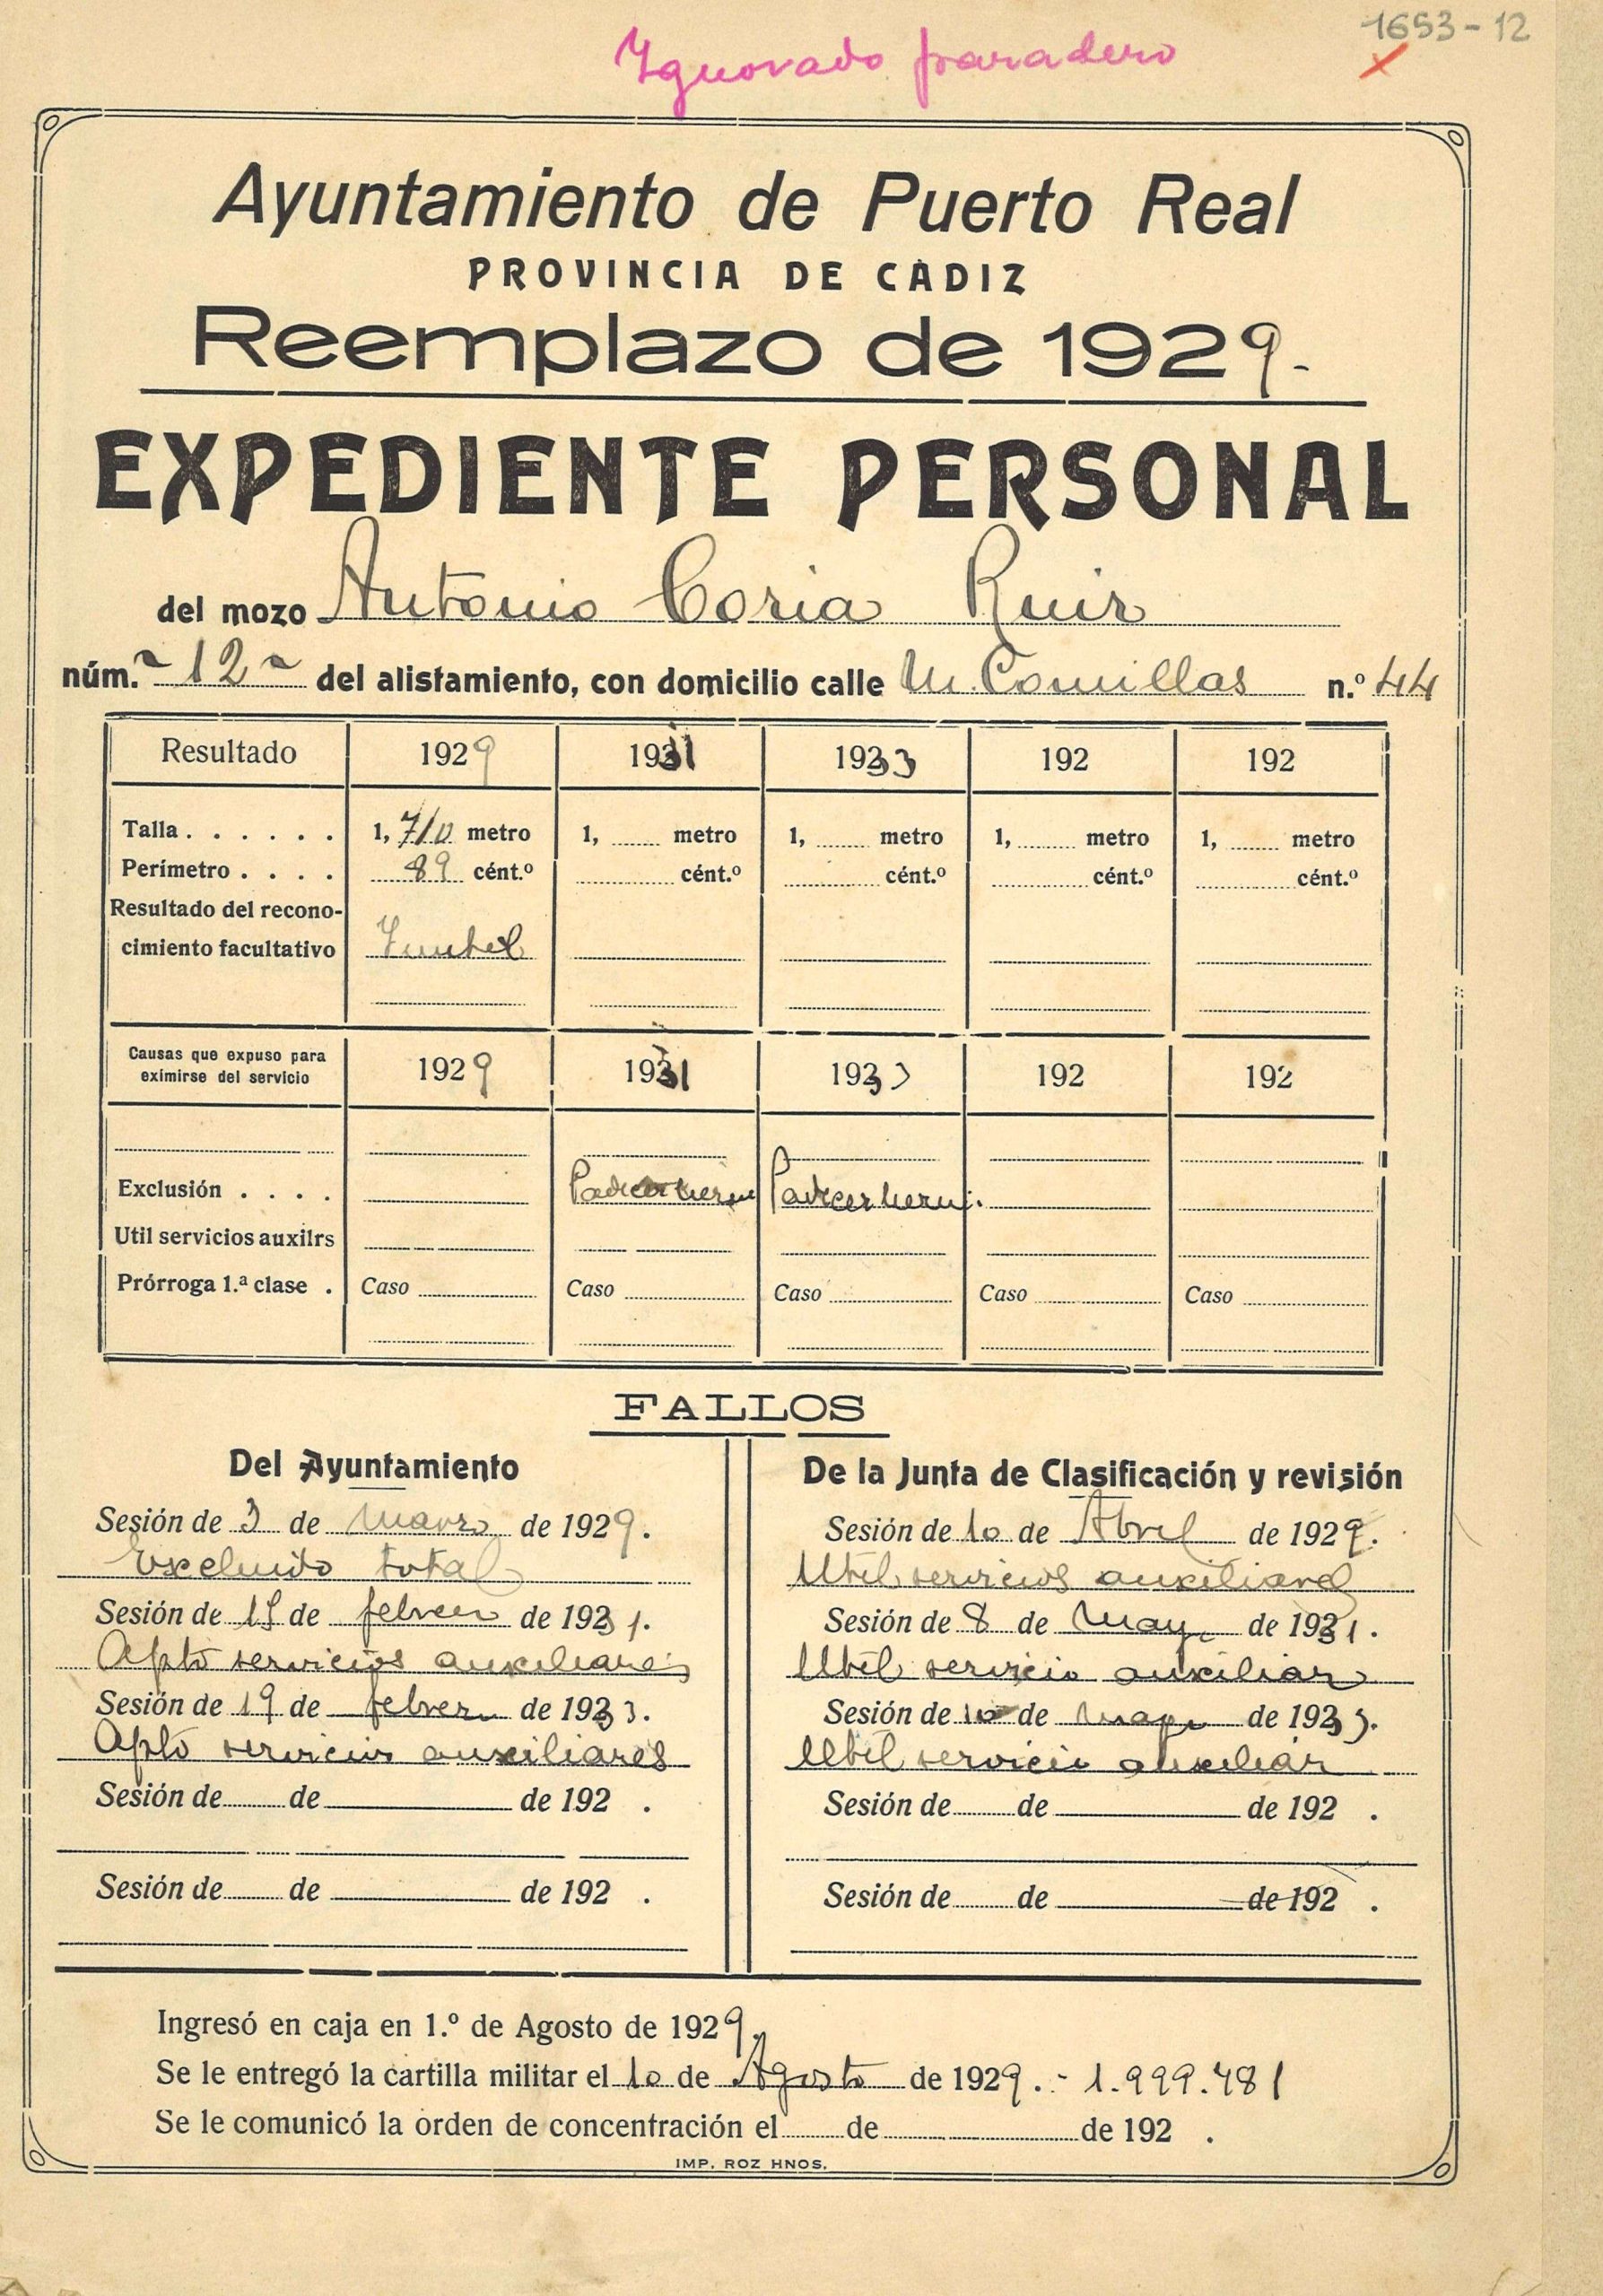 1653-12
Ygnorado paradero
Ayuntamiento de Puerto Real
PROVINCIA DE CÁDIZ
Reemplazo de 1929.-
EXPEDIENTE PERSONAL
del mozo Antonio Coria Ruiz
núm. 12 del alistamiento, con domicilio calle M. Comillas n.º 44
Resultado 1929 1931 1933 192 192
Talla. . . . . . 1, 710 metro 1, metro 1, metro 1, metro 1, metro
Perímetro . . . . 89 cént.º cént.º cént.º cént.º cént.º
Resultado del recono-
cimiento facultativo Ynutil
Causas que expuso para
eximirse del servicio 1929 1931 1933 192 192
Exclusión . . . . Padecer hern Padecer herni.
Util servicios auxilrs
Prórroga 1.ª clase . Caso Caso Caso Caso Caso
FALLOS
Del Ayuntamiento
Sesión de 3 de Marzo de 1929.
Excluido total
Sesión de 15 de febrero de 1931.
Apto servicios auxiliares
Sesión de 19 de febrero de 1933.
Apto servicios auxiliares
Sesión de de de 192 .
Sesión de de de 192 .
De la Junta de Clasificación y revisión
Sesión de 10 de Abril de 1929.
Util servicios auxiliares
Sesión de 8 de Mayo de 1931.
Util servicio auxiliar
Sesión de 10 de mayo de 1933.
Util servicio auxiliar
Sesión de de de 192 .
Sesión de de de 192 .
Ingresó en caja en 1.º de Agosto de 1929.
Se le entregó la cartilla militar el 10 de Agosto de 1929.- 1.999.481
Se le comunicó la orden de concentración el de de 192 .
IMP. ROZ HNOS.